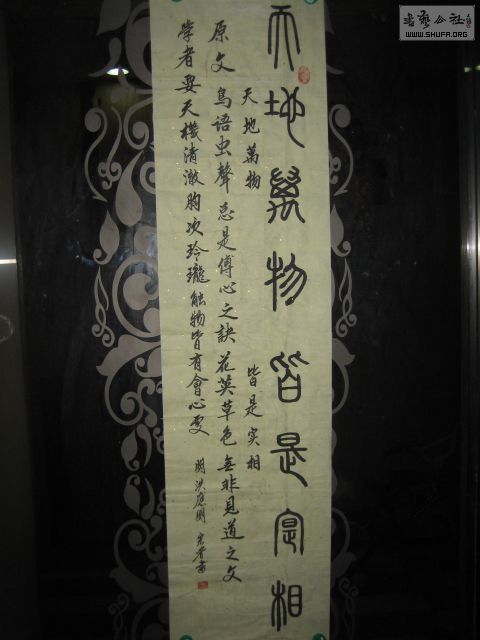 天地萬物皆是實相
天地萬物 皆是实相
原文 鸟语虫聲总是傳心之訣花英草色無非見道之文
學者要天機清澈胸次玲瓏触物皆有會心處
明洪應明
書藝公社
WWW.SHUFA.ORG